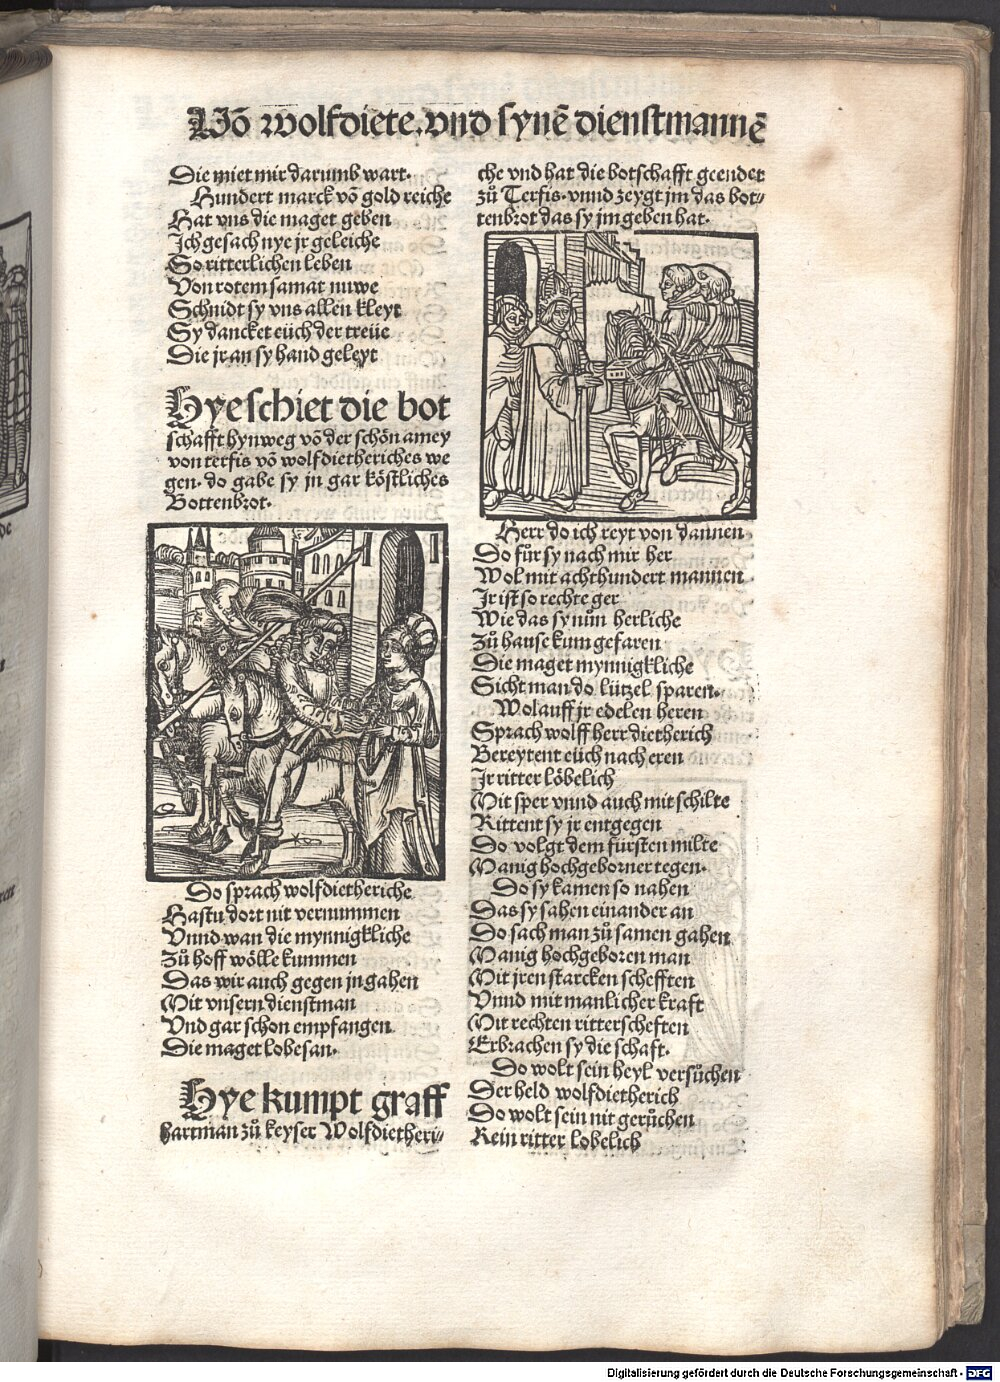 Vō wolfdiete. vnd synē dienstmannē
Die miet mir darumb wart.
Hundert marck vō gold reiche
Hat vns die maget geben
Ich gesach nye jr geleiche
So ritterlichen leben
Von rotem samat nuwe
Schnidt sy vns allen kleyt
Sy dancket eüch der treüe
Die jr an sy hand geleyt
Hye schiet die bot
schafft hynweg vō der schön amey
von terfis vō wolfdietheriches we
gen. do gabe sy jn gar köstliches
Bottenbrot.
Do sprach wolfdietheriche
Hastu dort nit vernummen
Vnnd wan die mynnigkliche
Zů hoff wölle kummen
Das wir auch gegen jn gahen
Mit vnsern dienstman
Vnd gar schon empfangen
Die maget lobesan.
Hye kumpt graff
hartman zů keyser Wolfdietheri-
che vnd hat die botschafft geendet
zů Terfis. vnnd zeygt jm das bot-
tenbrot das sy jm geben hat.
Herr do ich reyt von dannen
Do fůr sy nach mir her
Wol mit achthundert mannen
Ir ist so rechte ger
Wie das sy nun herliche
Zů hause kum gefaren
Die maget mynnigkliche
Sicht man do lützel sparen.
Wolauff jr edelen heren
Sprach wolff herr dietherich
Bereytent eüch nach eren
Ir ritter löbelich
Mit sper vnnd auch mit schilte
Rittent sy jr entgegen
Do volgt dem fürsten milte
Manig hochgeborner tegen.
Do sy kamen so nahen
Das sy sahen einander an
Do sach man zů samen gahen
Manig hochgeboren man
Mit jren starcken schefften
Vnnd mit manlicher kraft
Mit rechten ritterscheften
Erbrachen sy die schaft.
Do wolt sein heyl versůchen
Der held wolfdietherich
Do wolt sein nit gerůchen
Kein ritter lobelich
Digitalisierung gefördert durch die Deutsche Forschungsgemeinschaft - DFG